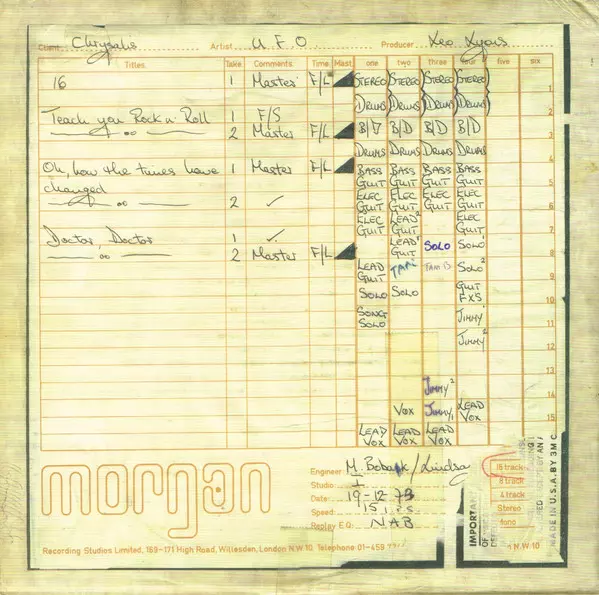 Client Chrysalis Artist U.F.O. Producer Leo Lyons
Titles Take Comments Time Mast. one two three four five six
16 1 Master F/L STEREO STEREO STEREO STEREO 1
DRUMS DRUMS DRUMS DRUMS 2
Teach you Rock n' Roll 1 F/S
—— " —— 2 Master F/L B/D B/D B/D B/D 3
DRUMS DRUMS DRUMS DRUMS
Oh, how the times have 1 Master F/L BASS BASS BASS BASS 5
changed GUIT GUIT GUIT GUIT
—— " —— 2 ✓ ELEC GUIT ELEC GUIT ELEC GUIT ELEC GUIT 6
ELEC GUIT LEAD² GUIT ELEC GUIT 7
Doctor, Doctor 1 ✓
—— " —— 2 Master F/L LEAD' GUIT SOLO SOLO' 8
LEAD GUIT TAM TAMB SOLO² 9
SOLO SOLO GUIT FXS 10
SONG SOLO JIMMY' 11
JIMMY² 12
13
JIMMY² 14
VOX JIMMY, LEAD VOX 15
LEAD VOX LEAD VOX LEAD VOX
morgan
Engineer M. Bobak/Lindsay
Studio I
Date 19-12-73
Speed 15 i.p.s
Replay E.Q. NAB
16 track
8 track
4 track
Stereo
Recording Studios Limited, 169-171 High Road, Willesden, London N.W.10. Telephone 01-459
N.W.10
IMPORTANT
MADE IN U.S.A. BY 3M C